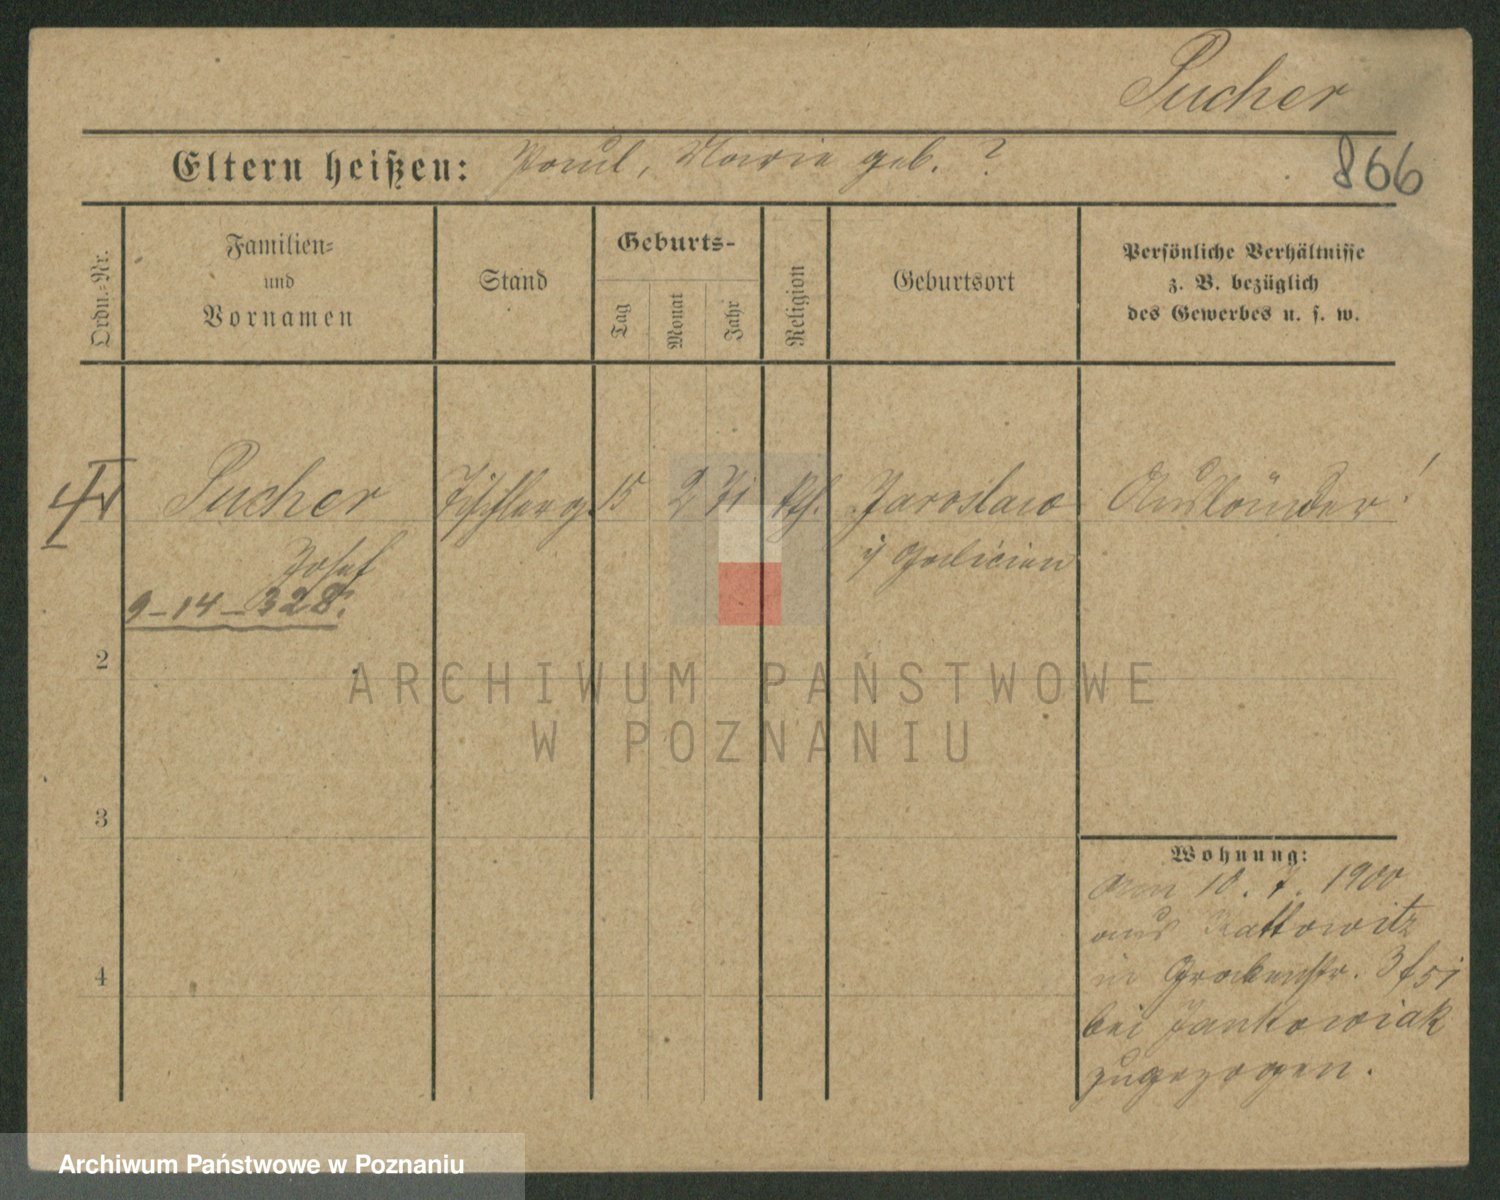 Pucher
Eltern heißen: Paul, Marie geb. ?
866
Ordn.-Nr.
Familien-
und
Vornamen
Stand
Geburts-
Tag
Monat
Jahr
Religion
Geburtsort
Persönliche Verhältnisse
z. B. bezüglich
des Gewerbes u. s. w.
Pucher Tischlerg. 15 2 71 kth. Jaroslaw Ausländer!
Josef i/ Galicien
9-14-328.
2
3
4
Wohnung:
Am 10. 7. 1900
aus Kattowitz
in Grabenstr. 3
bei Jankowiak
zugezogen.
ARCHIWUM PAŃSTWOWE
W POZNANIU
Archiwum Państwowe w Poznaniu